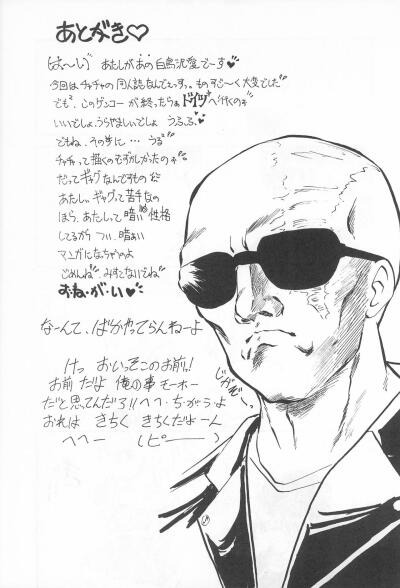 あとがき♡
は～い♡ あたしがあの白鳥沢愛でーす♥
今回はチャチャの同人誌なんでぇっす。ものすご～く大変でした
でも、このゲンコーが終ったらぁドイツへ行くのォ
いいでしょ、うらやましいでしょ うるる♥
でもね、その前に…うるる
チャチャって描くのむずかしかったのォ
だってギャグなんですもの
あたしィ、ギャグって苦手なの
ほら、あたしって暗い性格
してるから つい、暗ぁい
マンガになちゃうのよ
ごめんねェ みすてないでね
お・ね・が・い♥
なーんて、ばかやってらんねーよ
けっ おいっそこのお前!!
お前だよ 俺の事モーホー
だと思ってんだろ!! へへ・ち・が・う・よ
おれは きちく きちくだよーん
へへー (ピー――)